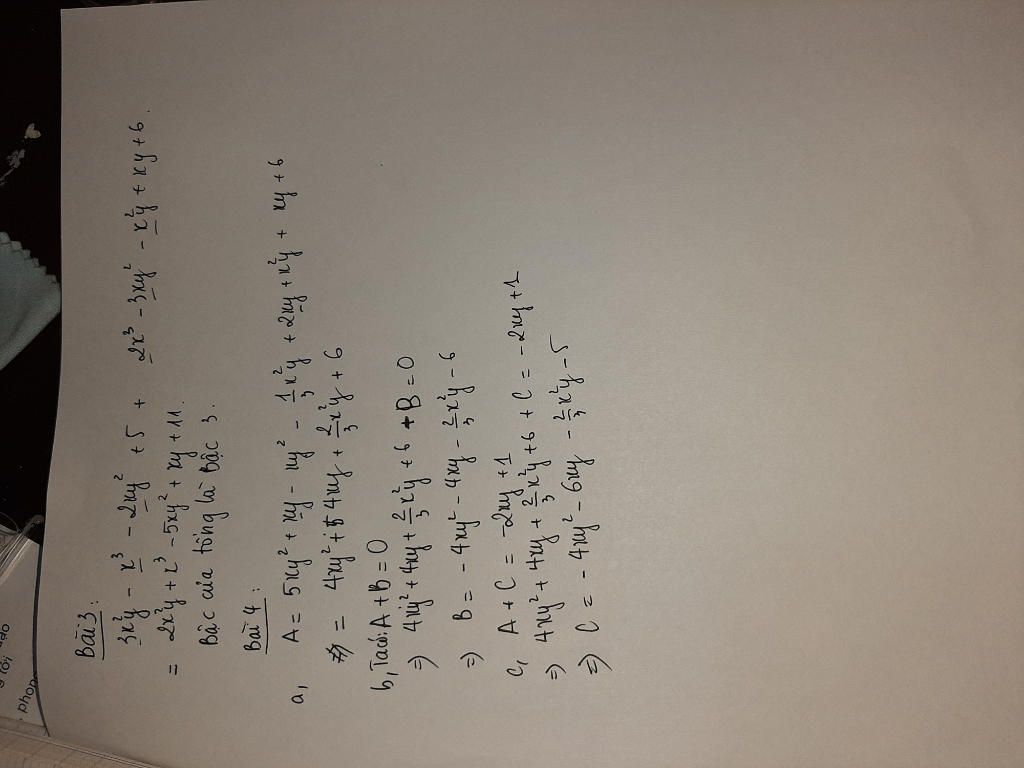 Bài 3:
3x²y - x³ - 2xy² + 5 + 2x³ - 3xy² - x²y + xy + 6.
= 2x²y + x³ - 5xy² + xy + 11.
Bậc của tổng là Bậc 3.
Bài 4:
a, A = 5xy² + xy - xy² - 1/3 x²y + 2xy + x²y + xy + 6
= 4xy² + 4xy + 2/3 x²y + 6
b, Ta có: A + B = 0
=> 4xy² + 4xy + 2/3 x²y + 6 + B = 0
=> B = - 4xy² - 4xy - 2/3 x²y - 6
c, A + C = -2xy + 1
=> 4xy² + 4xy + 2/3 x²y + 6 + C = - 2xy + 1
=> C = - 4xy² - 6xy - 2/3 x²y - 5
phon